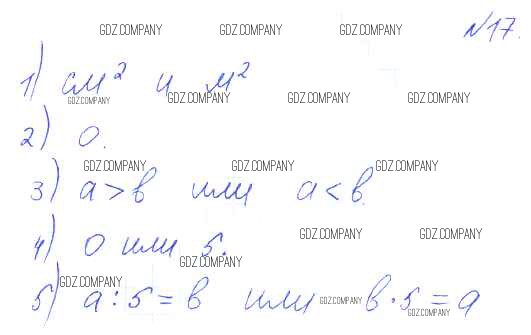 GDZ.COMPANY GDZ.COMPANY GDZ.COMPANY №17.
1) см² и м²
GDZ.COMPANY GDZ.COMPANY GDZ.COMPANY GDZ.COMPANY
2) 0.
GDZ.COMPANY GDZ.COMPANY GDZ.COMPANY
3) a > b или a < b.
GDZ.COMPANY GDZ.COMPANY
4) 0 или 5.
GDZ.COMPANY
GDZ.COMPANY
5) a : 5 = b или GDZ.COMPANY b · 5 = a
GDZ.COMPANY